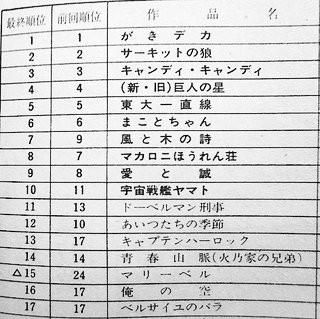 最終順位 前回順位 作品名
1 1 がきデカ
2 2 サーキットの狼
3 3 キャンディ・キャンディ
4 4 (新・旧)巨人の星
5 5 東大一直線
6 6 まことちゃん
7 9 風と木の詩
8 7 マカロニほうれん荘
9 8 愛と誠
10 11 宇宙戦艦ヤマト
11 13 ドーベルマン刑事
12 10 あいつたちの季節
13 17 キャプテンハーロック
14 14 青春山脈(火乃家の兄弟)
△15 24 マリーベル
16 17 俺の空
17 17 ベルサイユのバラ